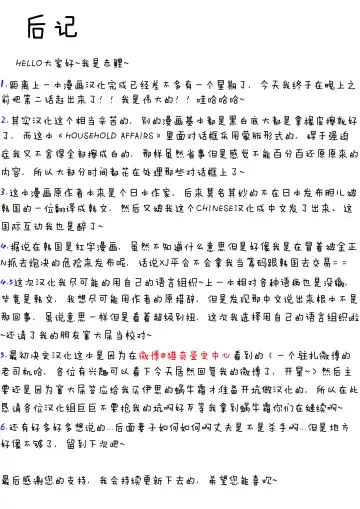 后记
HELLO大家好~我是赤鲤~
1.距离上一本漫画汉化完成已经差不多有一个星期了，今天我终于在晚上之
前吧第二话赶出来了！！我是伟大的！！哇哈哈哈~
2.其实汉化这个相当辛苦的，别的漫画基本都是黑白底大都是拿橡皮擦就好
了，而这本《HOUSEHOLD AFFAIRS》里面对话框采用蒙版形式的，碍于强迫
症我又不舍得全部擦成白的，那样虽然省事但是感觉不能百分百还原原来的
内容，所以大部分时间都花在处理那些对话框上了~
3.这本漫画原作者本来是个日本作家，后来莫名其妙的不在日本发布跑儿被
韩国的一位翻译成韩文，然后又被我这个CHINESE汉化成中文发了出来。这
国际互动我也是醉了~
4.据说在韩国是红字漫画，虽然不知道什么意思但是好像我是在冒着被金正
N抓去炮决的危险来发布呢，话说XJ平会不会拿我当筹码跟韩国去交易==
4.5这次汉化我尽可能的用自己的语言组织~上一本相对各种语病也是没辙，
毕竟是韩文，我想尽可能用作者的原措辞，但是发现那中文说出来根本不是
那回事，虽说意思一样但是看着超级别扭，这次我选择用自己的语言组织啦
~还请了我的朋友富大屌当校对~
5.最初决定汉化这本是因为在微博@猎奇鉴定中心看到的（一个驻扎微博的
老司机哈，各位有兴趣可以看下今天居然回复我的微博了，开馨~）然后主
要还是因为富大屌答应给我买伊思的蜗牛霜才准备开坑做汉化的，所以在此
恳请各位汉化组巨巨不要抢我的坑啊好歹等我拿到蜗牛霜你们在继续啊~
6.还有好多好多想说的...后面妻子如何如何啊丈夫是不是杀手啊...但是地方
好像不够了，留到下次吧~
最后感谢您的支持，我会持续更新下去的，希望您能喜欢~